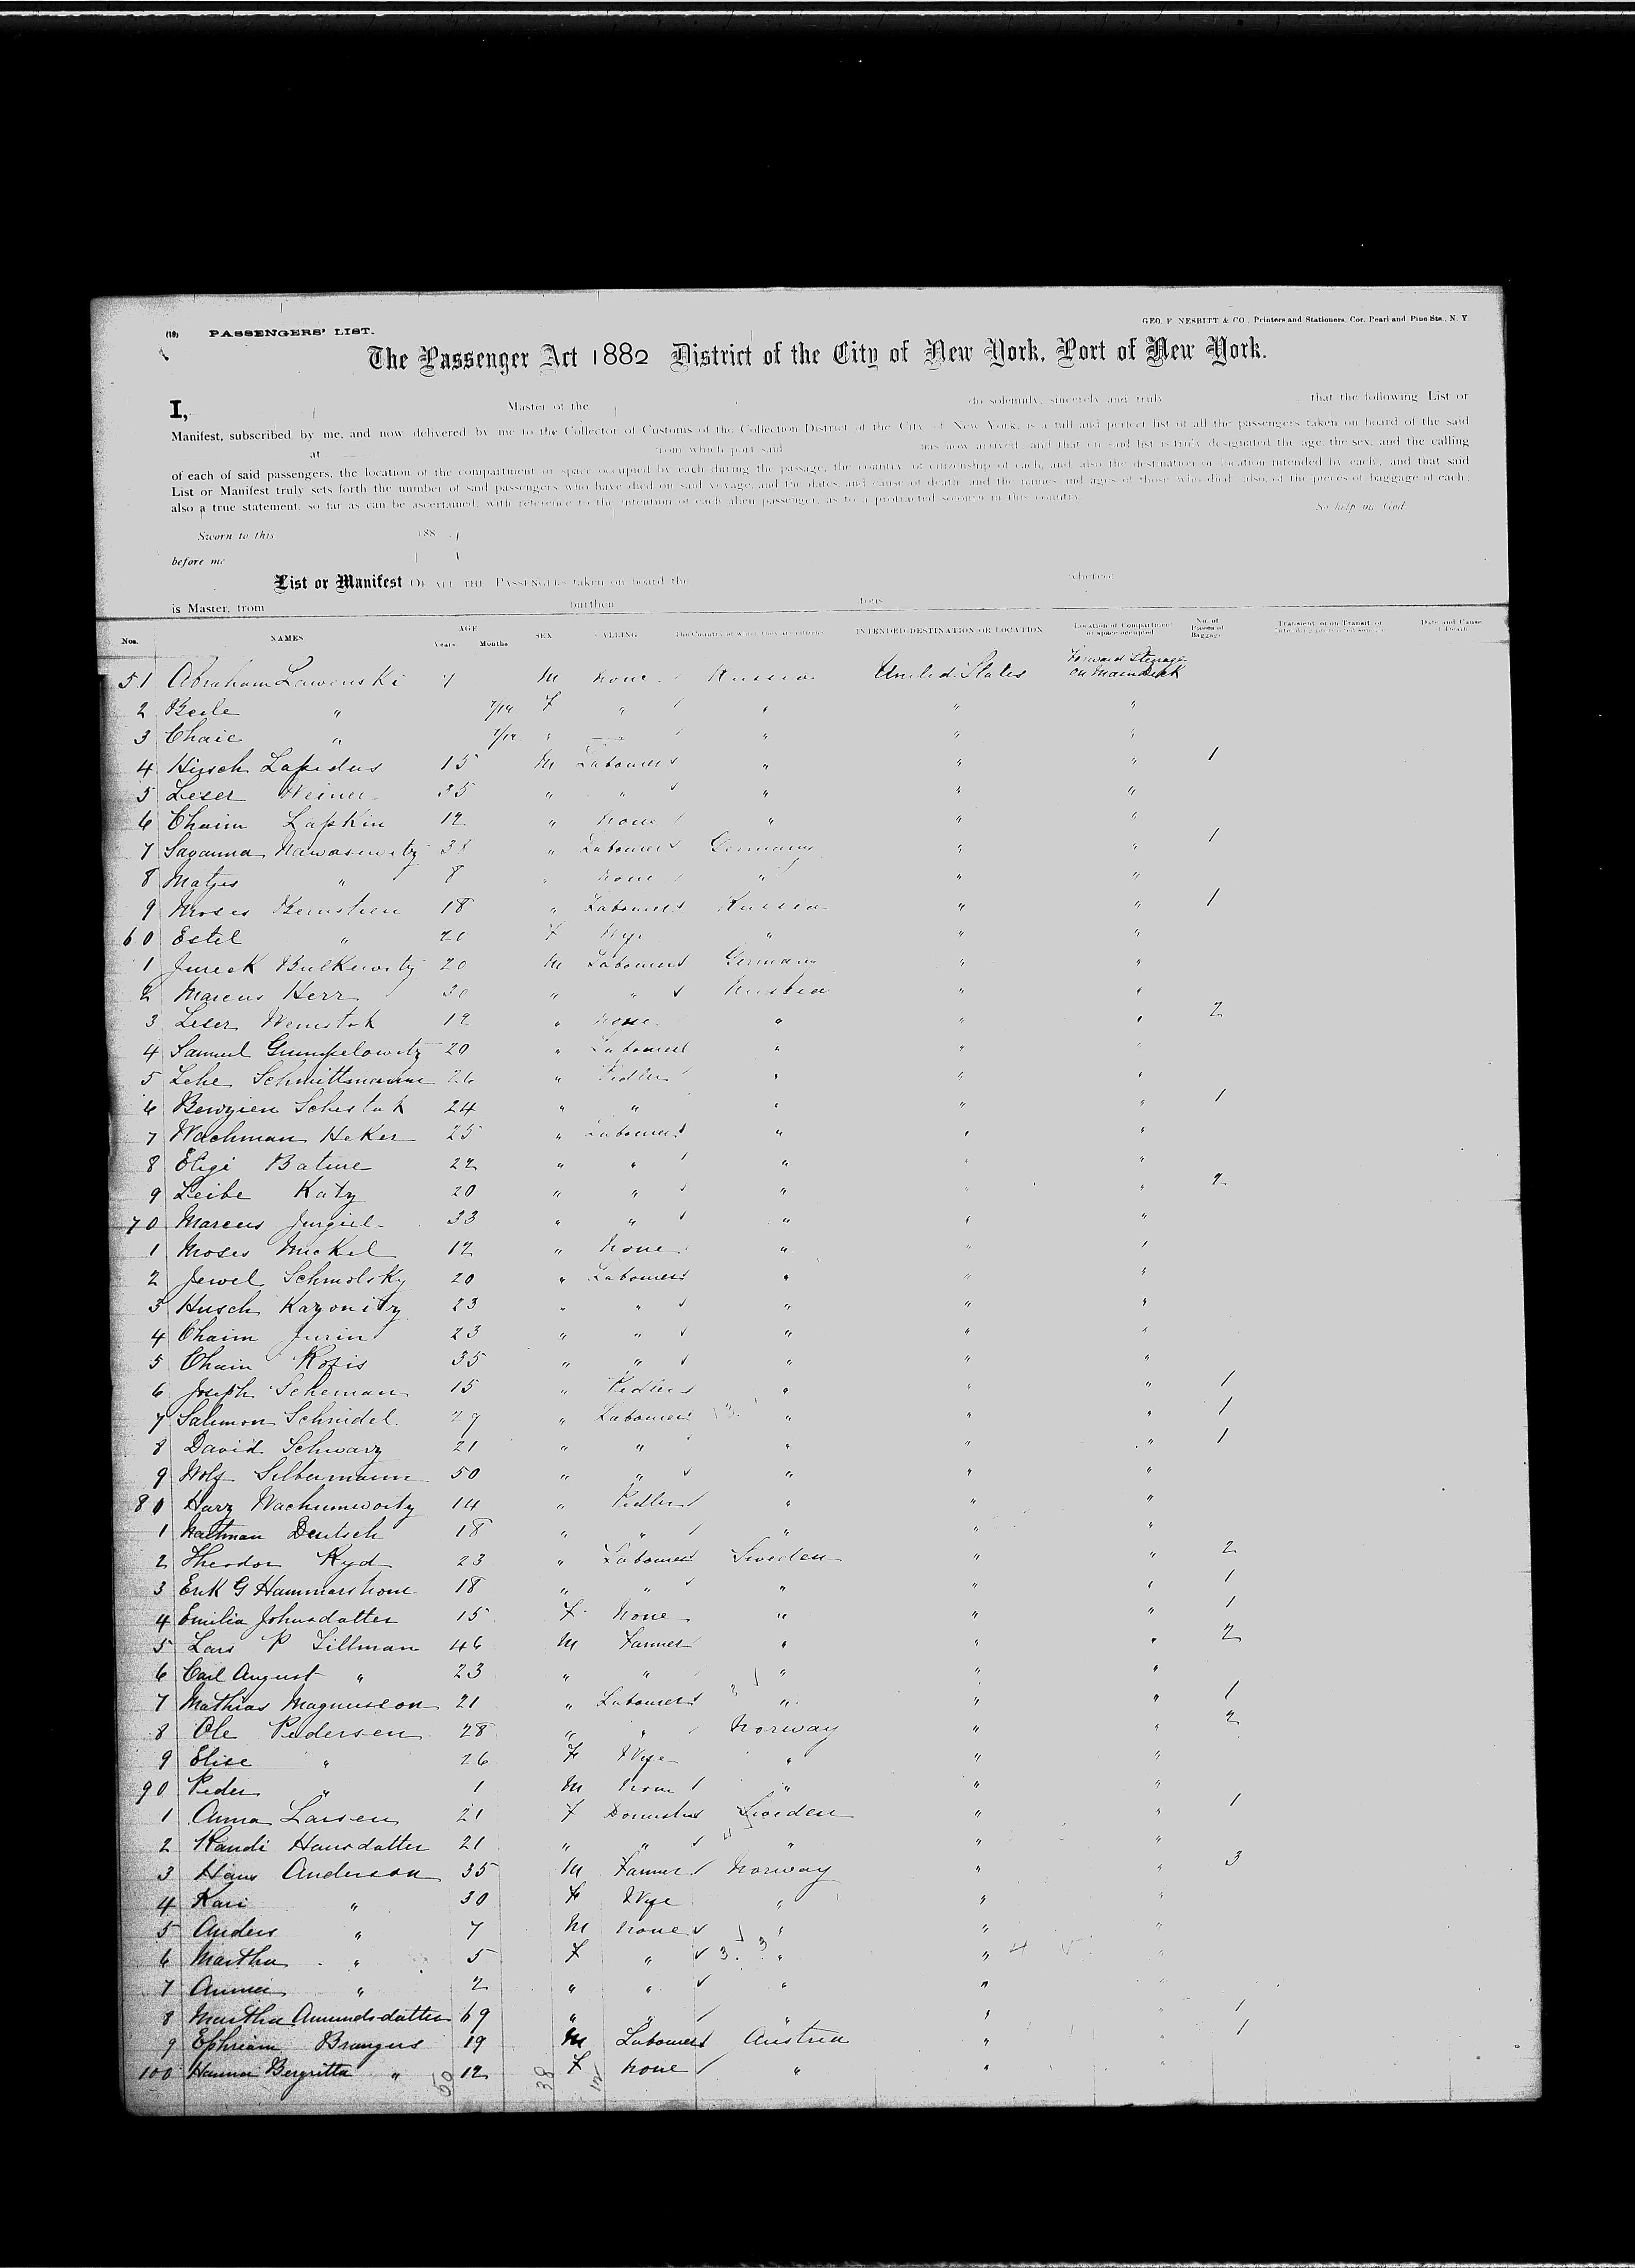 GEO. F. NESBITT & CO., Printers and Stationers, Cor. Pearl and Pine Sts., N. Y.
(18) PASSENGERS' LIST.
The Passenger Act 1882 District of the City of New York, Port of New York.
I, Master of the do solemnly, sincerely and truly that the following List or
Manifest, subscribed by me, and now delivered by me to the Collector of Customs of the Collection District of the City of New York, is a full and perfect list of all the passengers taken on board of the said
at from which port said has now arrived, and that on said list is truly designated the age, the sex, and the calling
of each of said passengers, the location of the compartment or space occupied by each during the passage, the country of citizenship of each, and also the destination or location intended by each; and that said
List or Manifest truly sets forth the number of said passengers who have died on said voyage, and the dates and cause of death, and the names and ages of those who died; also, of the pieces of baggage of each;
also a true statement, so far as can be ascertained, with reference to the intention of each alien passenger, as to a protracted sojourn in this country.
So help me God.
Sworn to this 188
before me
List or Manifest OF ALL THE PASSENGERS taken on board the whereof
is Master, from burthen tons
Nos. NAMES AGE Years Months SEX CALLING The Country of which they are citizens INTENDED DESTINATION OR LOCATION Location of Compartment or space occupied No. of Pieces of Baggage Transient or in Transit, or Intending protracted sojourn Date and Cause of Death
51 Abraham Lawenski 7 M None Russia United States Forward Steerage on Main Deck
2 Beile " F " " " "
3 Chaie " " " " "
4 Hirsch Lapidus 15 M Labourer " " " 1
5 Leser Weiner 35 " " " " "
6 Chaim Lapkin 12 " None " " "
7 Saganna Nawasewitz 38 " Labourer Germany " " 1
8 Matjes " 8 " None " " "
9 Moses Bernstien 18 " Labourer Russia " " 1
60 Estel " 20 F Wife " " "
1 Jureck Bulkewitz 20 M Labourer Germany " "
2 Marcus Herr 30 " " Russia " "
3 Leser Wenistok 12 " None " " " 2
4 Samuel Gumpelowitz 20 " Labourer " " "
5 Lehe Schmittsmann 26 " Pedler " " "
6 Benzien Schestak 24 " " " " " 1
7 Wachman Heker 25 " Labourer " " "
8 Eligi Batine 22 " " " " "
9 Leibe Katz 20 " " " " " 2
70 Marcus Jurgiel 33 " " " " "
1 Moses Mickel 12 " None " " "
2 Jewel Schmolsky 20 " Labourer " " "
3 Husch Kazonitz 23 " " " " "
4 Chaim Jurin 23 " " " " "
5 Chain Kofis 35 " " " " "
6 Joseph Scheman 15 " Pedler " " " 1
7 Salimon Schnidel 29 " Labourer " " " 1
8 David Schwarz 21 " " " " " 1
9 Wolf Silbermann 50 " " " " "
80 Harz Wachumwoitz 14 " Pedler " " "
1 Nathman Deutsch 18 " " " " "
2 Theodor Kyd 23 " Labourer Sweden " " 2
3 Erik G Hammarstrom 18 " " " " " 1
4 Emilia Johnsdatter 15 F None " " " 1
5 Lars P Tillman 46 M Farmer " " " 2
6 Carl August " 23 " " " " "
7 Mathias Magnusson 21 " Labourer " " " 1
8 Ole Pedersen 28 " " Norway " " 2
9 Elise " 26 F Wife " " "
90 Peder " 1 M None " " "
1 Anna Larsen 21 F Domestic Sweden " " 1
2 Randi Hansdatter 21 " " " " "
3 Hans Anderson 35 M Farmer Norway " " 3
4 Kari " 30 F Wife " " "
5 Anders " 7 M None " " "
6 Martha " 5 F " " " "
7 Anna " 2 " " " " "
8 Martha Amundsdatter 69 " " " " " 1
9 Ephriam Brungus 19 M Labourer Austria " " 1
100 Hanna Bergritta " 12 F None " " "
50 38 12